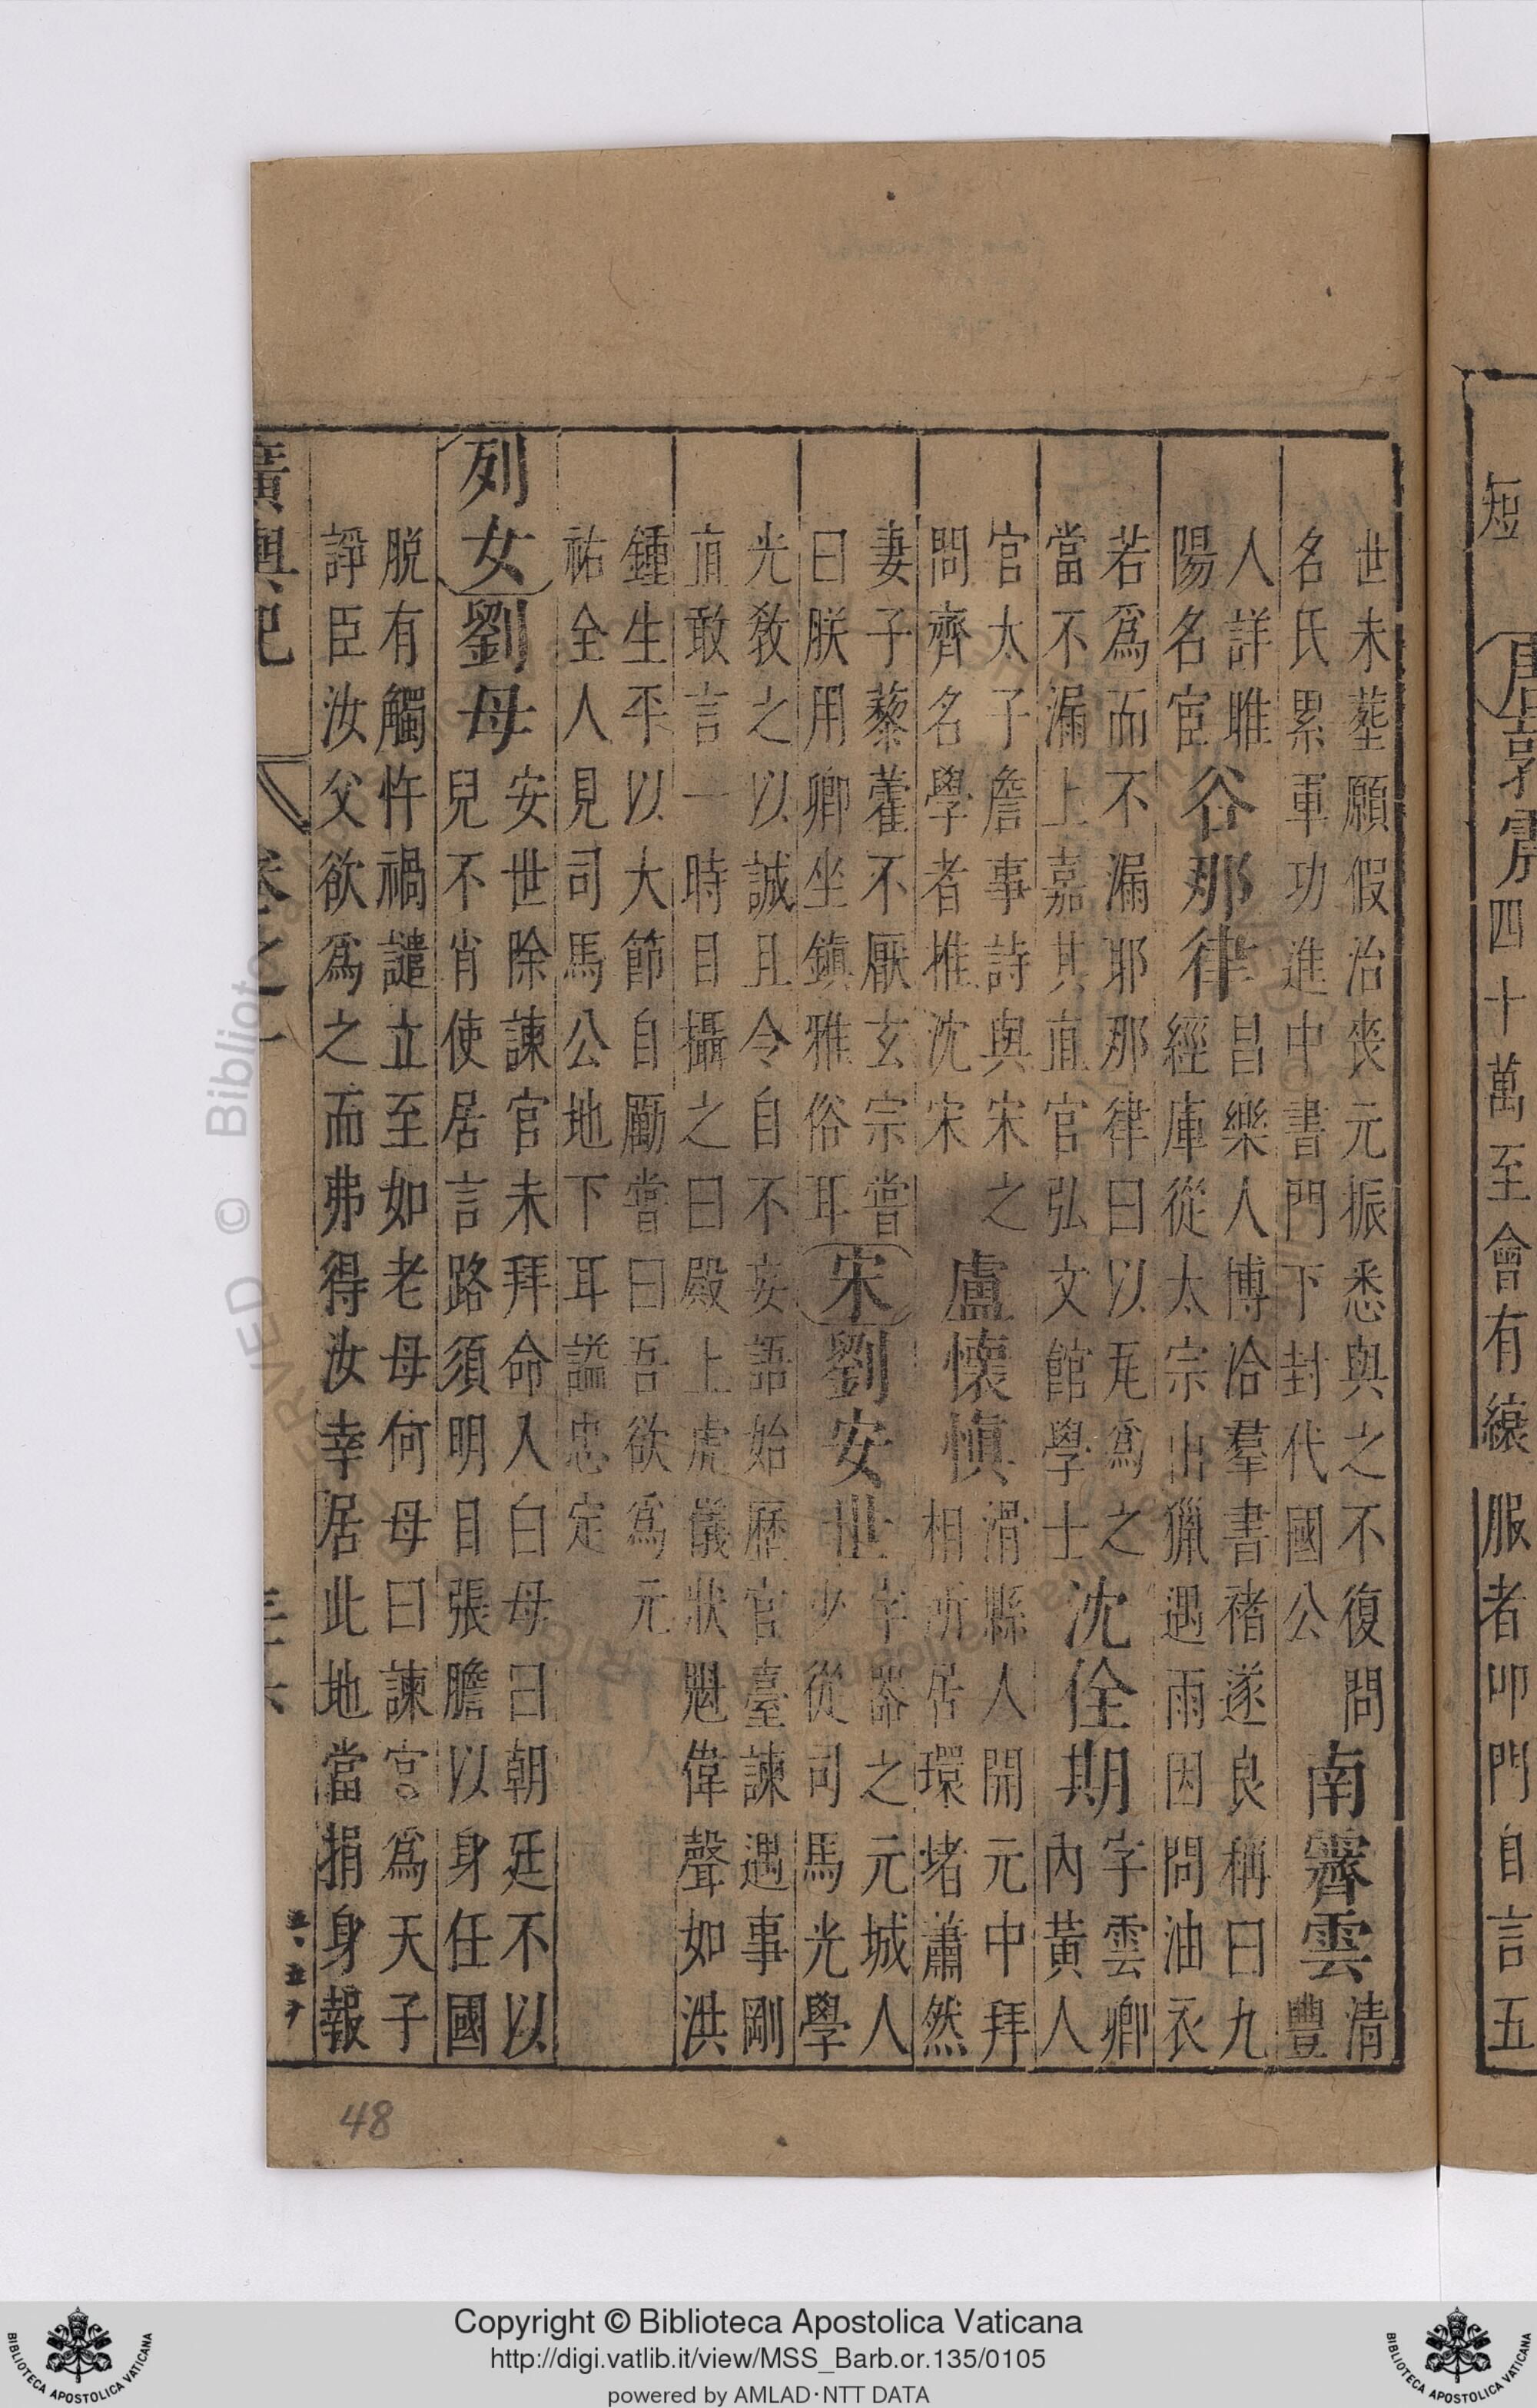 短
唐郭震
四十萬至會有縗服者叩門自言五
世未塟願假治喪元振悉與之不復問
名氏累軍功進中書門下封代國公
南霽雲
清
豐
人詳睢
陽名宦
谷那律
昌樂人博洽羣書禇遂良稱曰九
經庫從太宗出獵遇雨因問油衣
若爲而不漏耶那律曰以瓦爲之
當不漏上嘉其直官弘文館學士
沈佺期
字雲卿
內黃人
官太子詹事詩與宋之
問齊名學者推沈宋
盧懷愼
滑縣人開元中拜
相所居環堵蕭然
妻子藜藿不厭玄宗嘗
曰朕用卿坐鎮雅俗耳
宋劉安世
字器之元城人
少從司馬光學
光敎之以誠且令自不妄語始歷官臺諫遇事剛
直敢言一時目攝之曰殿上虎儀狀魁偉聲如洪
鍾生平以大節自勵嘗曰吾欲爲元
祐全人見司馬公地下耳謚忠定
列女劉母
安世除諫官未拜命入白母曰朝廷不以
兒不肖使居言路須明目張膽以身任國
脫有觸忤禍譴立至如老母何母曰諫官爲天子
諍臣汝父欲爲之而弗得汝幸居此地當捐身報
廣輿記 卷之一
48
Copyright © Biblioteca Apostolica Vaticana
http://digi.vatlib.it/view/MSS_Barb.or.135/0105
powered by AMLAD·NTT DATA
BIBLIOTECA APOSTOLICA VATICANA
BIBLIOTECA APOSTOLICA VATICANA